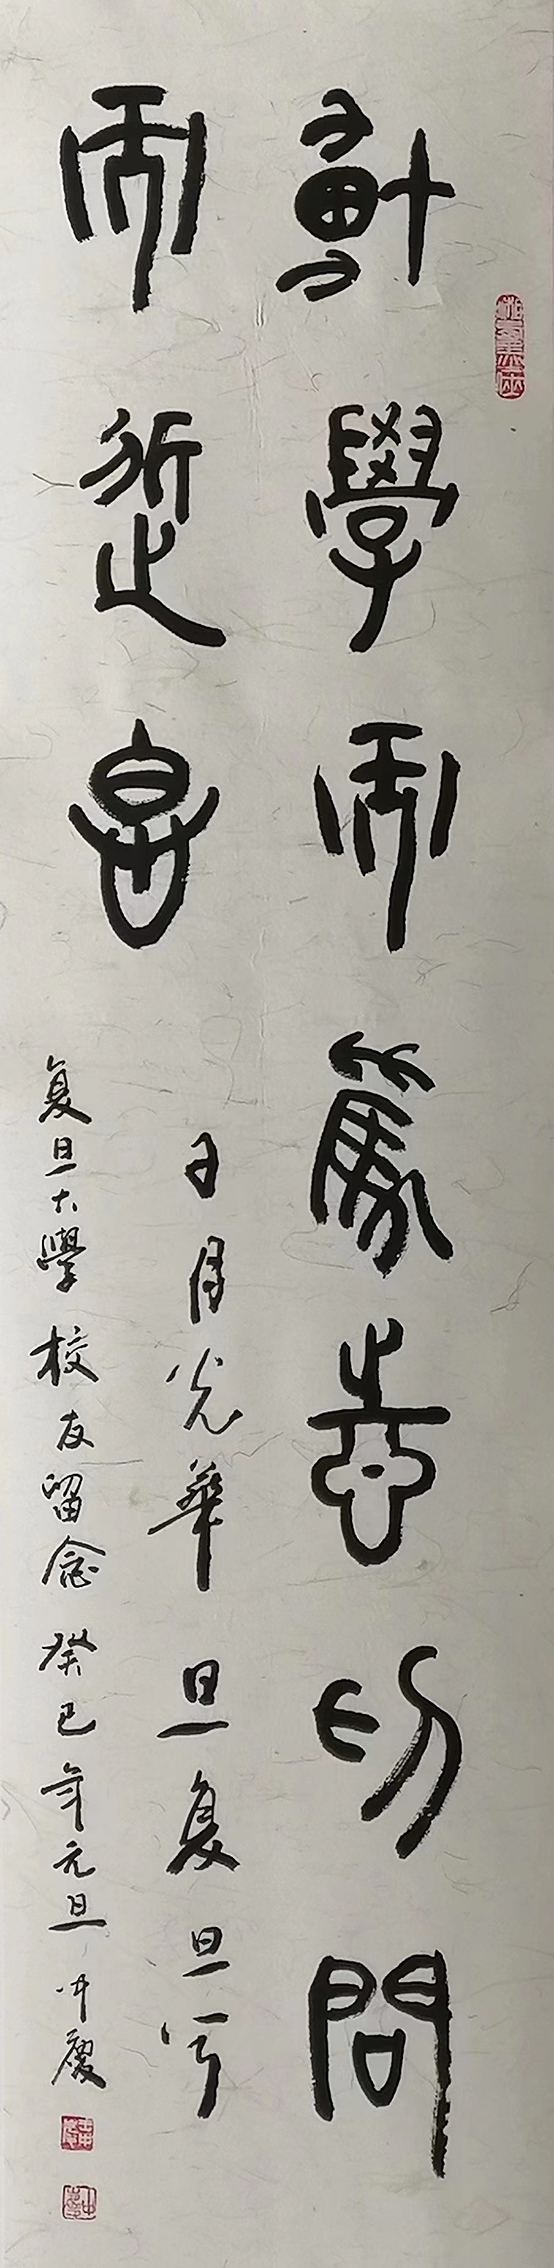 博學而篤志切問
而近思
日月光華旦复旦兮
复旦大學校友留念癸巳年元旦